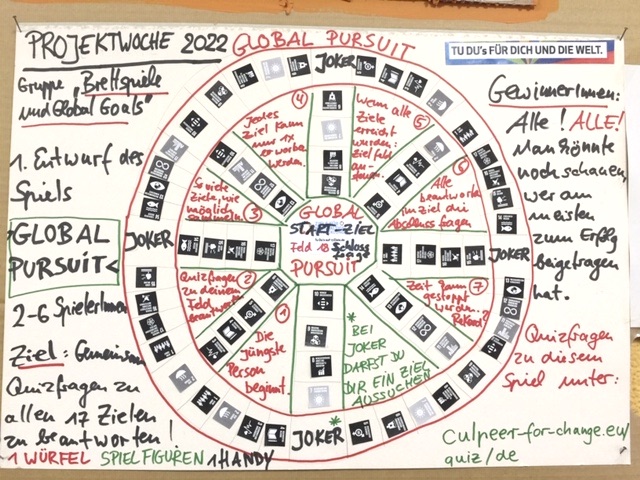 PROJEKTWOCHE 2022
GLOBAL PURSUIT
TU DU's FÜR DICH UND DIE WELT.
Gruppe „Brettspiele
und Global Goals"
1. Entwurf des
Spiels
GLOBAL
PURSUIT
2-6 SpielerInnen
Ziel: Gemeinsam
Quizfragen zu
allen 17 Zielen
zu beantworten!
1 WÜRFEL SPIELFIGUREN 1 HANDY
JOKER
JOKER
JOKER
JOKER *
1
Die
jüngste
Person
beginnt.
2
Quizfragen
zu deinem
Feld
beantworten
3
So viele
Ziele, wie
möglich
sammeln.
4
Jedes
Ziel kann
nur 1x
erworben
werden.
5
Wenn alle
Ziele
erreicht
werden:
Zielfeld an-
6
Alle
beantworten
im Ziel die
Abschlussfragen
7
Zeit kann
gestoppt
werden:
Rekord?
GLOBAL
START-ZIEL
Feld
PURSUIT
* BEI
JOKER
DARFST DU
DIR EIN ZIEL
AUSSUCHEN
GewinnerInnen:
Alle! ALLE!
Man könnte
noch schauen,
wer am
meisten
zum Erfolg
beigetragen
hat.
Quizfragen
zu diesem
Spiel unter:
culpeer-for-change.eu/
quiz/de